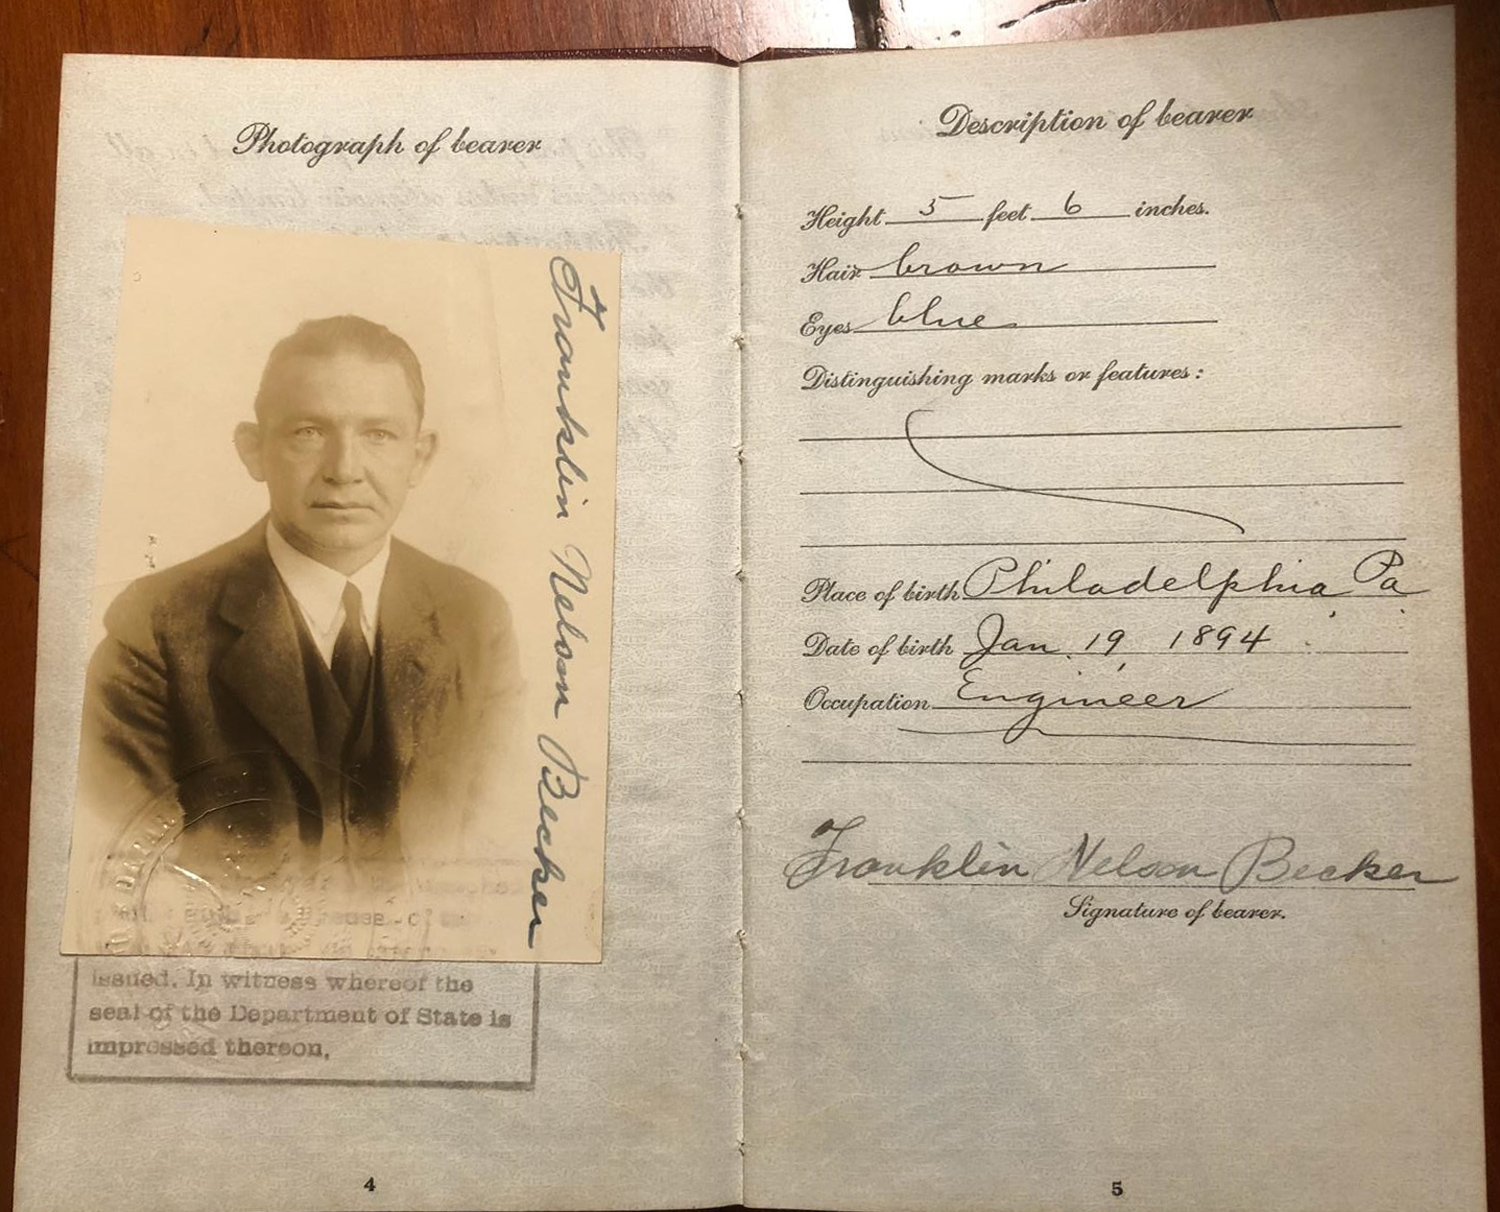 Photograph of bearer
Franklin Nelson Becker
issued. In witness whereof the
seal of the Department of State is
impressed thereon.
4
Description of bearer
Height 5 feet 6 inches.
Hair brown
Eyes blue
Distinguishing marks or features:
Place of birth Philadelphia Pa
Date of birth Jan. 19, 1894
Occupation Engineer
Franklin Nelson Becker
Signature of bearer.
5